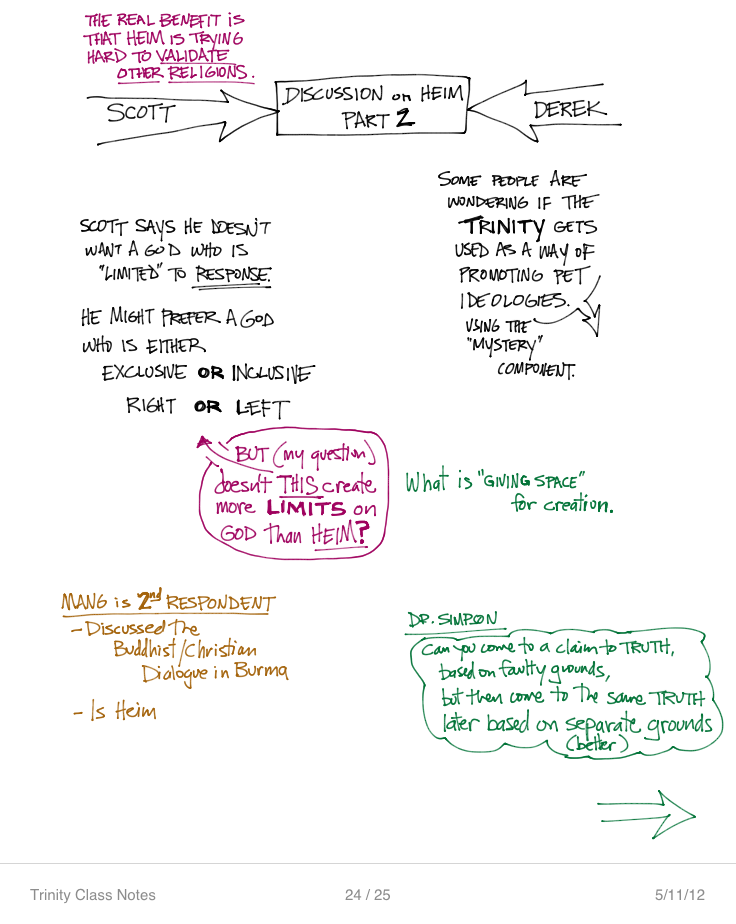 THE REAL BENEFIT is
THAT HEIM is TRYING
HARD TO VALIDATE
OTHER RELIGIONS.
SCOTT
DISCUSSION on HEIM
PART 2
DEREK
SCOTT SAYS HE DOESN'T
WANT A GOD WHO IS
"LIMITED" TO RESPONSE.
HE MIGHT PREFER A GOD
WHO IS EITHER
EXCLUSIVE OR INCLUSIVE
RIGHT OR LEFT
SOME PEOPLE ARE
WONDERING IF THE
TRINITY GETS
USED AS A WAY OF
PROMOTING PET
IDEOLOGIES.
USING THE
"MYSTERY"
COMPONENT.
BUT (my question)
doesn't THIS create
more LIMITS on
GOD than HEIM?
What is "GIVING SPACE"
for creation.
MANG is 2nd RESPONDENT
- Discussed the
Buddhist/Christian
Dialogue in Burma
- Is Heim
DR. SIMPSON
Can you come to a claim to TRUTH,
based on faulty grounds,
but then come to the same TRUTH
later based on separate grounds
(better)
Trinity Class Notes
24 / 25
5/11/12